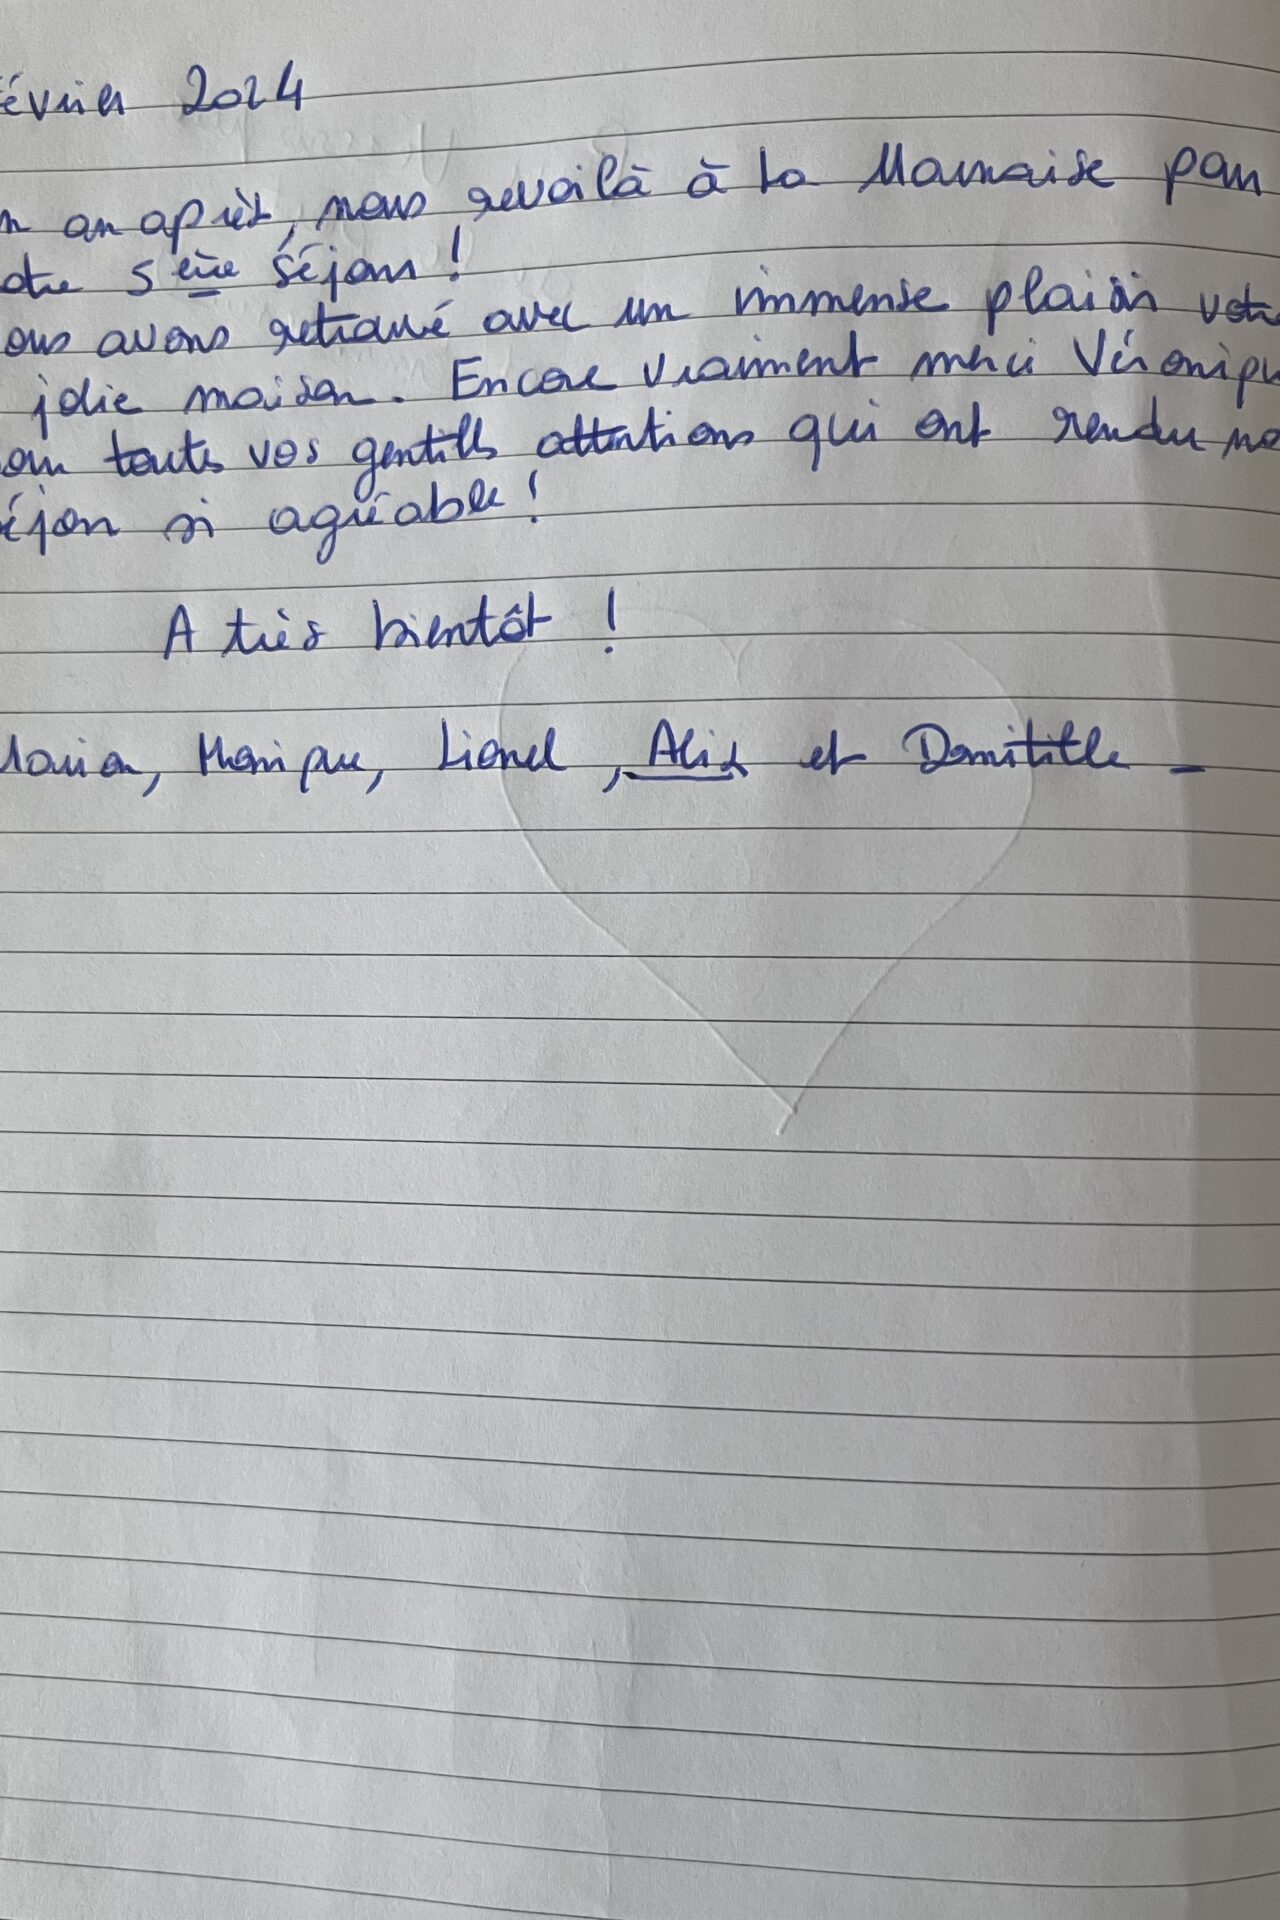 évrier 2024
n an après, nous revoilà à la Mamaise pour
otre 5ème séjour !
ous avons retrouvé avec un immense plaisir votre
jolie maison. Encore vraiment merci Véroniqu
our toutes vos gentilles attentions qui ont rendu no
éjour si agréable !
A très bientôt !
Marion, Monique, Lionel, Alix et Domitille -